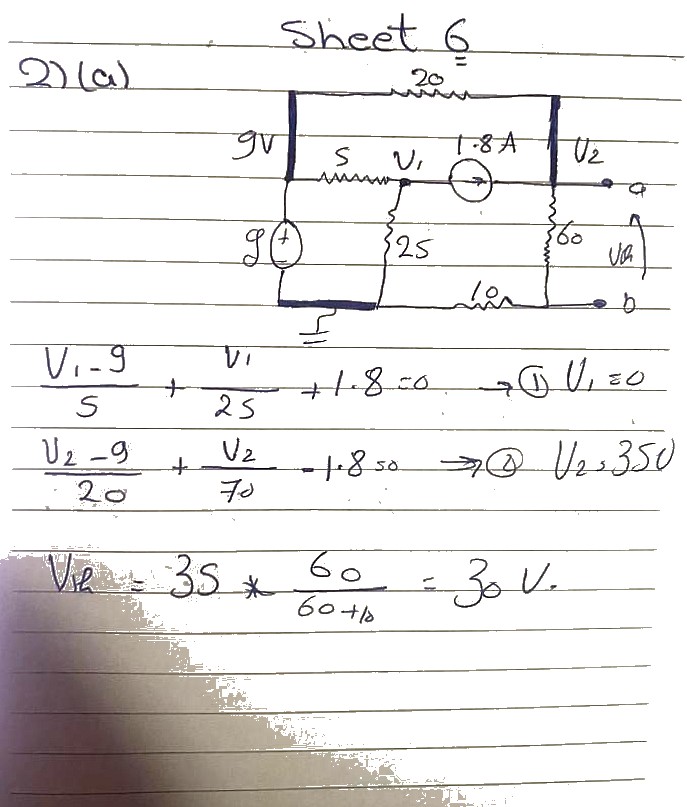 Sheet 6
2)(a)
20
9V
5 V₁ 1.8A V₂
a
9 + 25 60 Vth
-
10 b
(V₁ - 9)/5 + V₁/25 + 1.8 = 0 → ① V₁ = 0
(V₂ - 9)/20 + V₂/70 - 1.8 = 0 → ② V₂ = 35V
Vth = 35 * 60/(60+10) = 30 V.